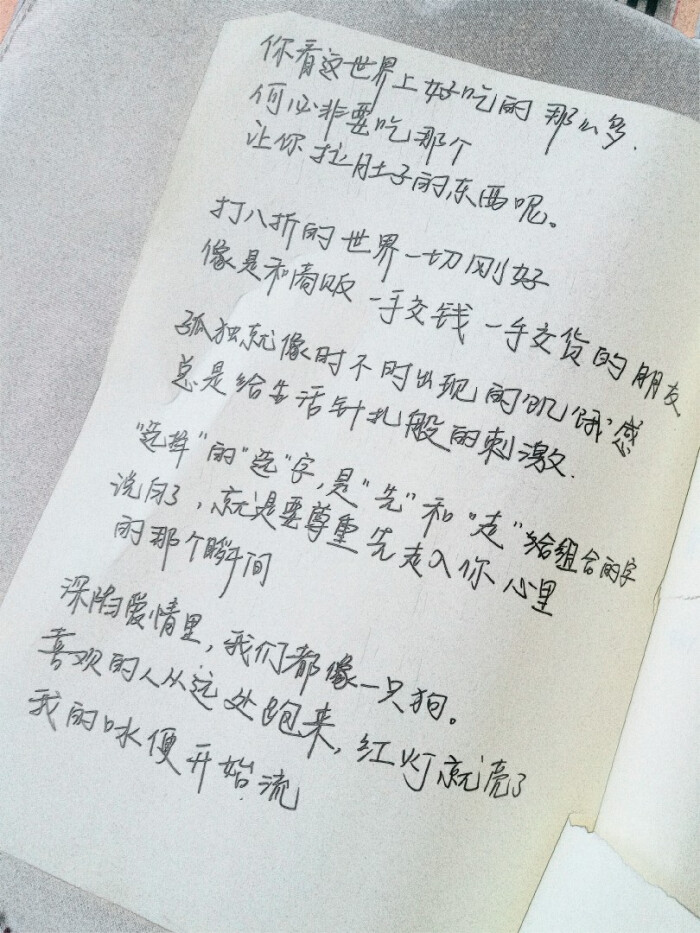 你看这世界上好吃的那么多.
何必非要吃那个
让你拉肚子的东西呢。
打八折的世界一切刚好
像是和商贩一手交钱一手交货的朋友
孤独就像时不时出现的饥饿感
总是给生活针扎般的刺激.
"选择"的"选"字,是"先"和"走"组合的字
说白了,就是要尊重先走入你心里
的那个瞬间
深陷爱情里,我们都像一只狗。
喜欢的人从远处跑来,红灯就亮了
我的口水便开始流